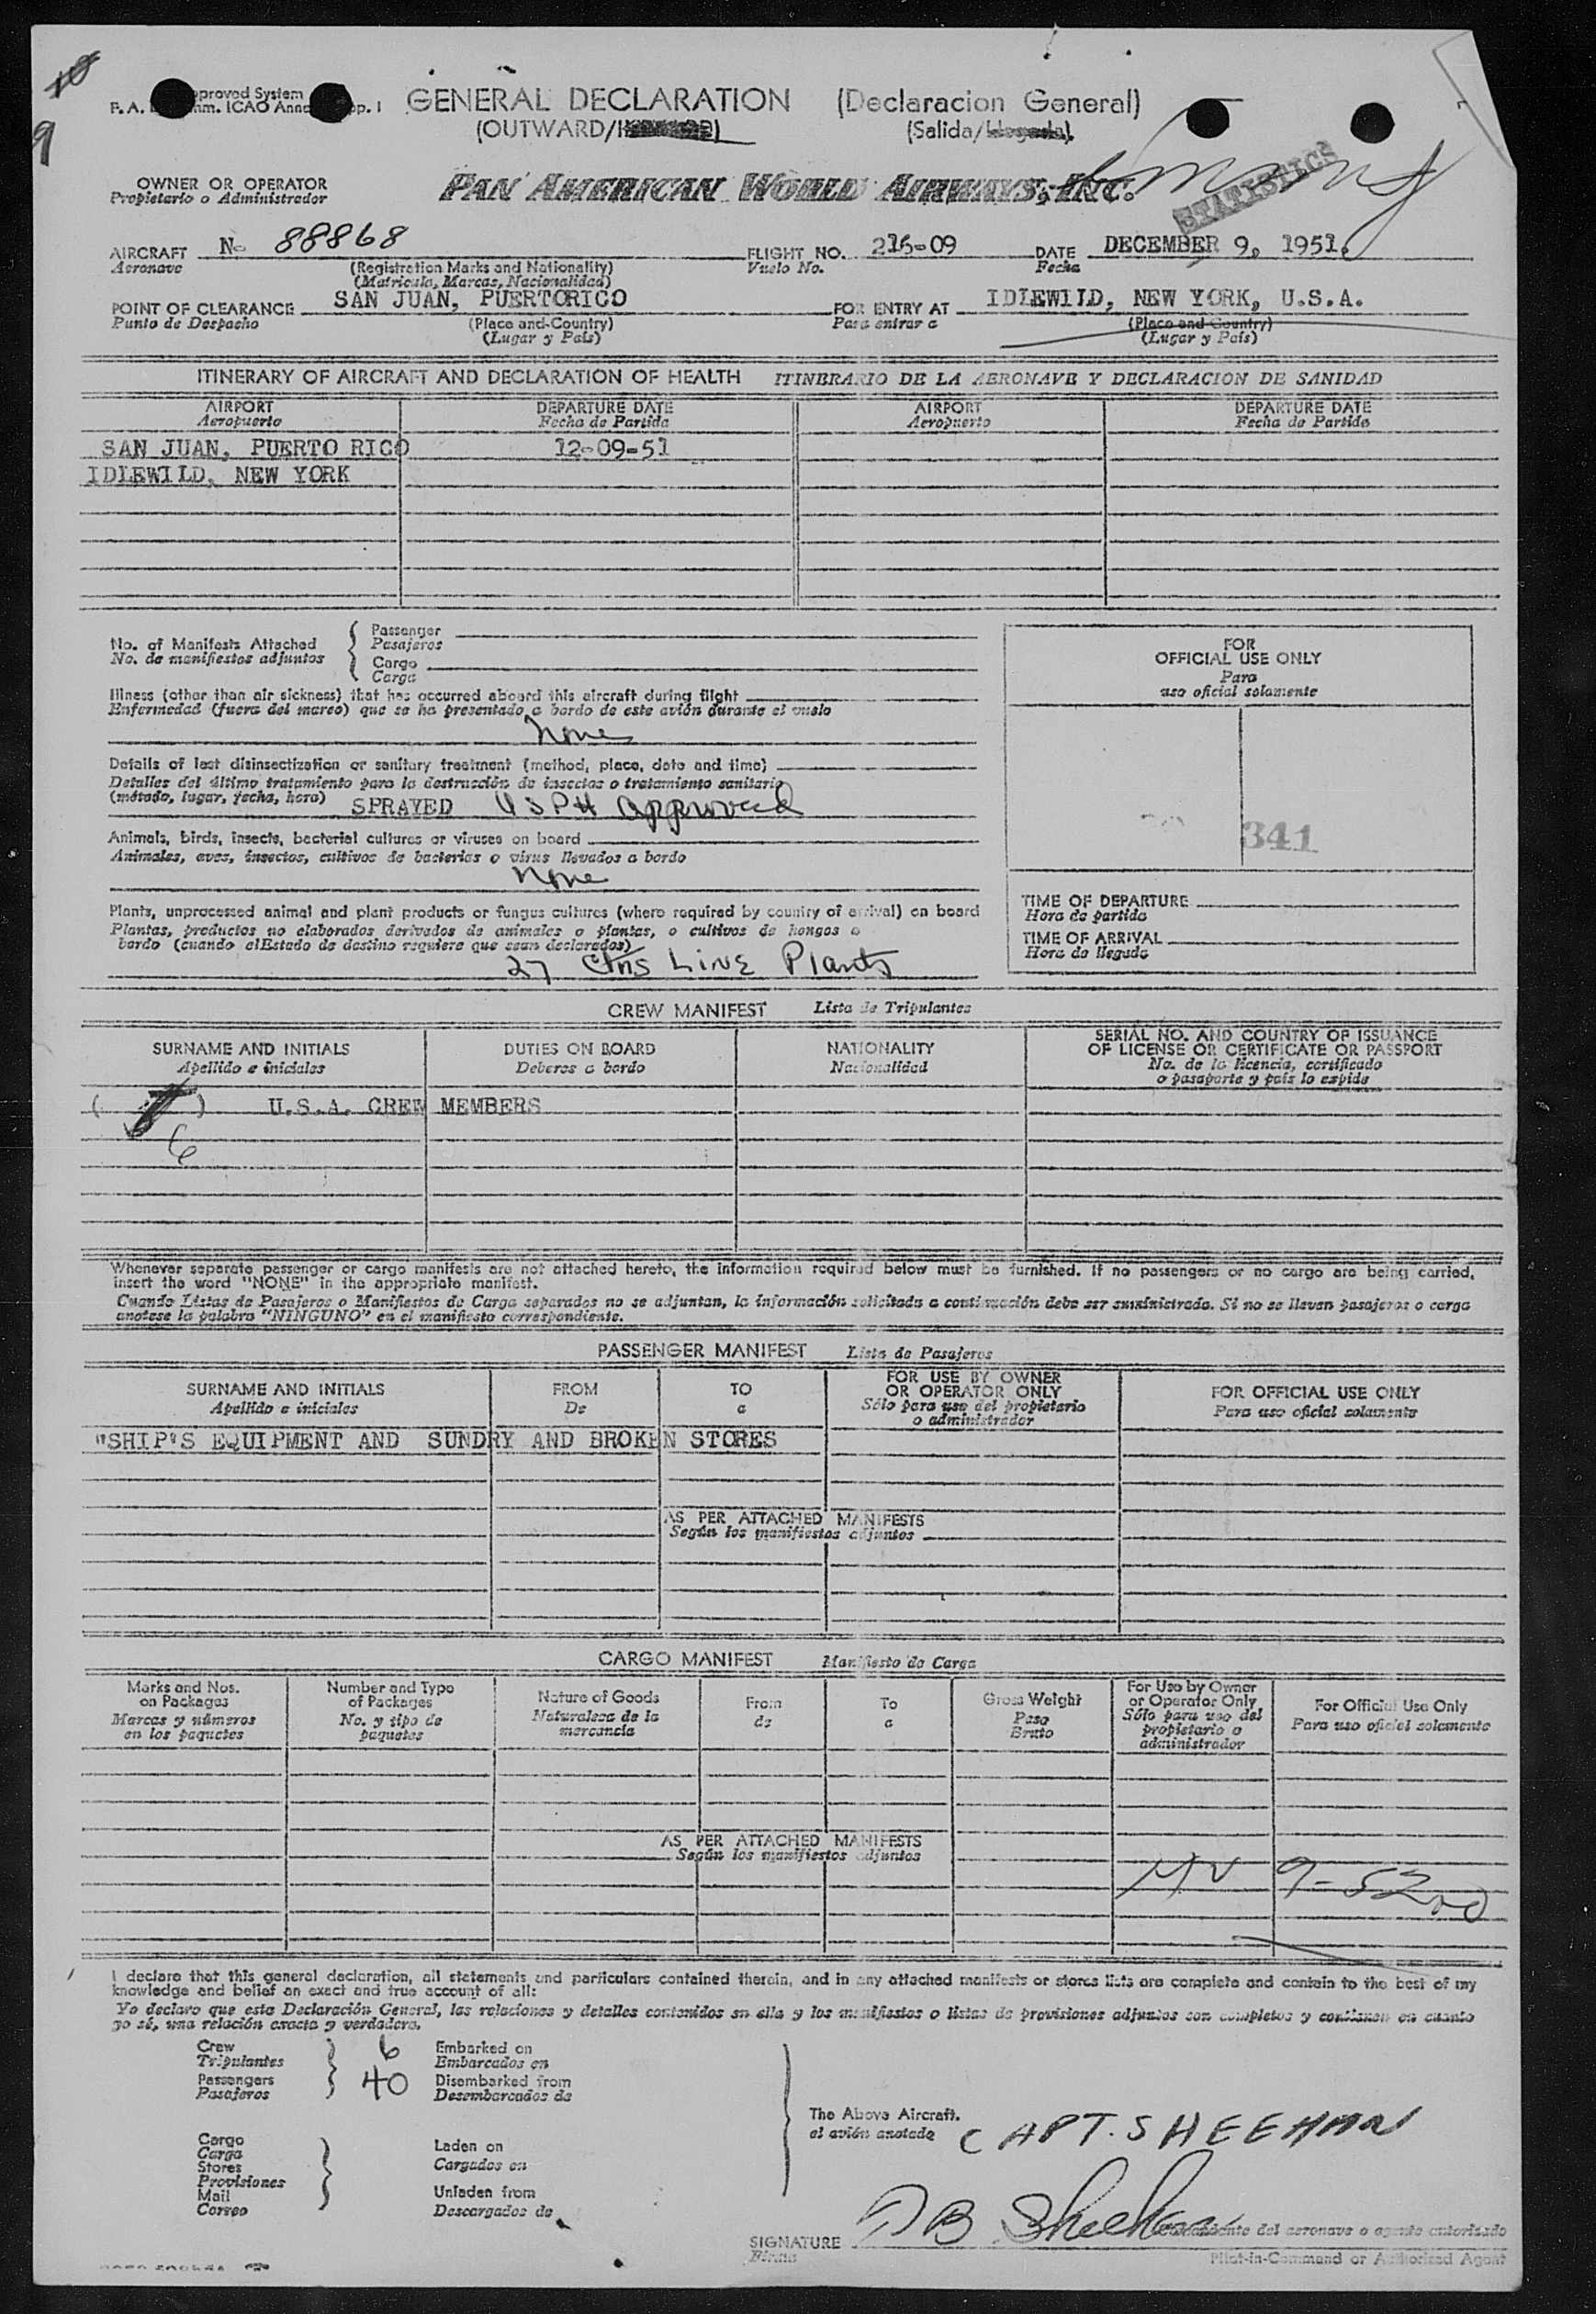 10
9
pproved System
F. A. mm. ICAO Anne pp. I
GENERAL DECLARATION (Declaracion General)
(OUTWARD/ (Salida/Llegada)
STATISTICS
OWNER OR OPERATOR
Propietario o Administrador
PAN AMERICAN WORLD AIRWAYS, INC.
AIRCRAFT No 88868 FLIGHT NO. 216-09 DATE DECEMBER 9, 1951.
Aeronave (Registration Marks and Nationality) Vuelo No. Fecha
(Matricula, Marcas, Nacionalidad)
POINT OF CLEARANCE SAN JUAN, PUERTORICO FOR ENTRY AT IDLEWILD, NEW YORK, U.S.A.
Punto de Despacho (Place and Country) Para entrar a (Place and Country)
(Lugar y País) (Lugar y País)
ITINERARY OF AIRCRAFT AND DECLARATION OF HEALTH ITINERARIO DE LA AERONAVE Y DECLARACION DE SANIDAD
AIRPORT DEPARTURE DATE AIRPORT DEPARTURE DATE
Aeropuerto Fecha de Partida Aeropuerto Fecha de Partida
SAN JUAN, PUERTO RICO 12-09-51
IDLEWILD, NEW YORK
No. of Manifests Attached
No. de manifiestos adjuntos
Passenger
Pasajeros
Cargo
Carga
Illness (other than air sickness) that has occurred aboard this aircraft during flight
Enfermedad (fuera del mareo) que se ha presentado a bordo de este avión durante el vuelo
None
Details of last disinsectization or sanitary treatment (method, place, date and time)
Detalles del último tratamiento para la destrucción de insectos o tratamiento sanitario
(método, lugar, fecha, hora) SPRAYED USPH approved
Animals, birds, insects, bacterial cultures or viruses on board
Animales, aves, insectos, cultivos de bacterias o virus llevados a bordo
None
Plants, unprocessed animal and plant products or fungus cultures (where required by country of arrival) on board
Plantas, productos no elaborados derivados de animales o plantas, o cultivos de hongos a
bordo (cuando el Estado de destino requiere que sean declarados)
27 Ctns LIVE Plants
FOR
OFFICIAL USE ONLY
Para
uso oficial solamente
341
TIME OF DEPARTURE
Hora de partida
TIME OF ARRIVAL
Hora de llegada
CREW MANIFEST Lista de Tripulantes
SURNAME AND INITIALS DUTIES ON BOARD NATIONALITY SERIAL NO. AND COUNTRY OF ISSUANCE
Apellido e iniciales Deberes a bordo Nacionalidad OF LICENSE OR CERTIFICATE OR PASSPORT
No. de la licencia, certificado
o pasaporte y país lo expide
( ) U.S.A. CREW MEMBERS
6
Whenever separate passenger or cargo manifests are not attached hereto, the information required below must be furnished. If no passengers or no cargo are being carried,
insert the word "NONE" in the appropriate manifest.
Cuando Listas de Pasajeros o Manifiestos de Carga separados no se adjuntan, la información solicitada a continuación debe ser suministrada. Si no se llevan pasajeros o carga
anotese la palabra "NINGUNO" en el manifiesto correspondiente.
PASSENGER MANIFEST Lista de Pasajeros
SURNAME AND INITIALS FROM TO FOR USE BY OWNER FOR OFFICIAL USE ONLY
Apellido e iniciales De a OR OPERATOR ONLY Para uso oficial solamente
Sólo para uso del propietario
o administrador
"SHIP'S EQUIPMENT AND SUNDRY AND BROKEN STORES
AS PER ATTACHED MANIFESTS
Según los manifiestos adjuntos
CARGO MANIFEST Manifiesto de Carga
Marks and Nos. on Packages Marcas y números en los paquetes
Number and Type of Packages No. y tipo de paquetes
Nature of Goods Naturaleza de la mercancía
From de
To a
Gross Weight Peso Bruto
For Use by Owner or Operator Only Sólo para uso del propietario o administrador
For Official Use Only Para uso oficial solamente
AS PER ATTACHED MANIFESTS
Según los manifiestos adjuntos
I declare that this general declaration, all statements and particulars contained therein, and in any attached manifests or stores lists are complete and contain to the best of my
knowledge and belief an exact and true account of all:
Yo declaro que esta Declaración General, las relaciones y detalles contenidos en ella y los manifiestos o listas de provisiones adjuntos son completos y contienen en cuanto
yo sé, una relación exacta y verdadera.
Crew 6 Embarked on
Tripulantes Embarcados en
Passengers 40 Disembarked from
Pasajeros Desembarcados de
The Above Aircraft.
el avión anotado CAPT. SHEEHAN
Cargo
Carga
Stores
Provisiones
Mail
Correo
Laden on
Cargados en
Unladen from
Descargados de
SIGNATURE D B Sheehan
Firma
del aeronave o agente autorizado
Pilot-in-Command or Authorized Agent